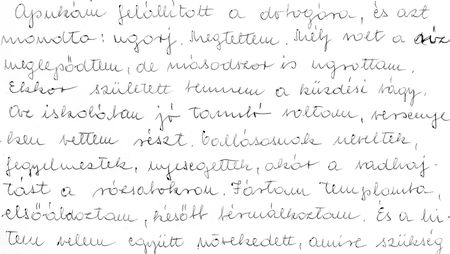 Apukám felállított a dobogóra, és azt
mondta: ugorj. Megtettem. Mély volt a víz
meglepődtem, de másodszor is ugrottam.
Ekkor született bennem a küzdési vágy.
Az iskolában jó tanuló voltam, versenye-
ken vettem részt. Vallásosnak neveltek,
fegyelmeztek, nyesegettek, akár a vadhaj-
tást a rózsabokron. Jártam templomba,
elsőáldoztam, később bérmálkoztam. És a hi-
tem velem együtt növekedett, amire szükség